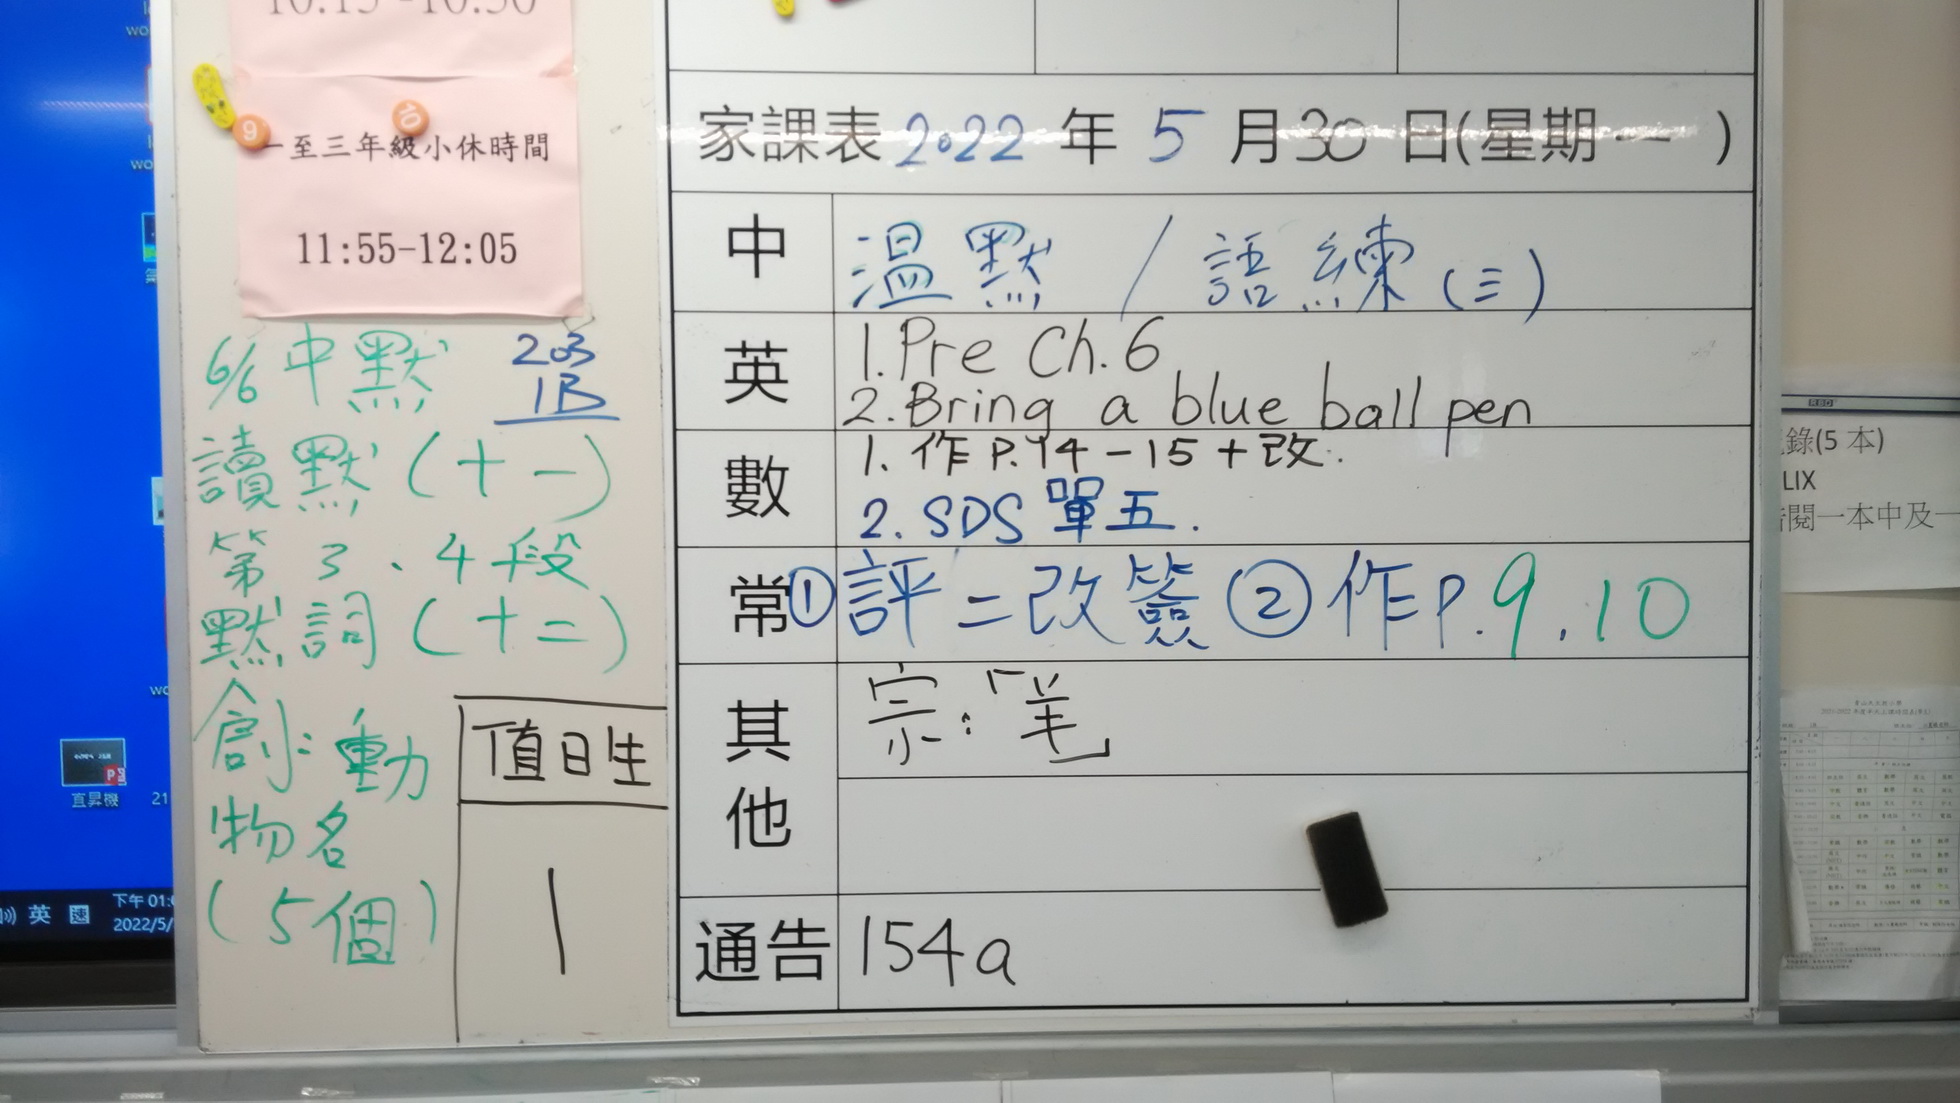 10:15-10:30
一至三年級小休時間
11:55-12:05
6/6 中默
203
1B
讀默(十一)
第3、4段
默詞(十二)
創:動
物名
(5個)
值日生
1
家課表2022年5月30日(星期一)
中
溫默/語練(三)
英
1.Pre Ch.6
2.Bring a blue ball pen
數
1.作P.14-15+改.
2.SDS單五.
常
①評二改簽②作P.9.10
其他
宗:「羊」
通告
154a
錄(5本)
LIX
閱一本中及一
直昇機
21
英
速
下午 01:
2022/5/